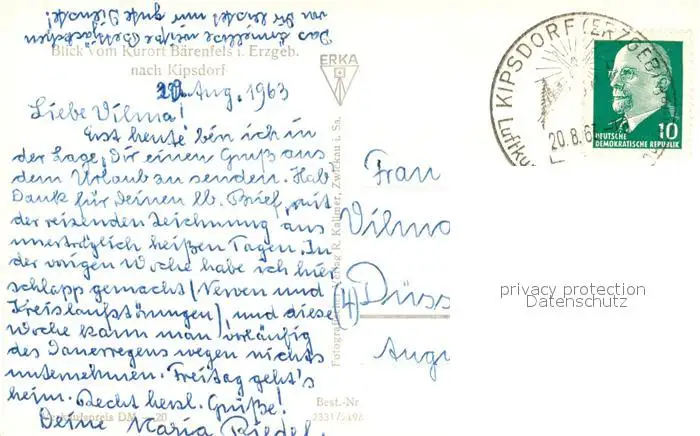 Das ärmellose weiße Bettjäckchen
von Dir leistet mir gute Dienste!
Blick vom Kurort Bärenfels i. Erzgeb.
nach Kipsdorf
ERKA
20. Aug. 1963
Liebe Vilma!
Erst heute bin ich in
der Lage, Dir einen Gruß aus
dem Urlaub zu senden. Hab
Dank für Deinen lb. Brief, mit
der reizenden Zeichnung aus
unerträglich heißen Tagen. In
der vorigen Woche habe ich hier
schlapp gemacht (Nerven und
Kreislaufstörungen), und diese
Woche kann man vorläufig
des Dauerregens wegen nichts
unternehmen. Freitag geht's
heim. Recht herzl. Grüße!
Deine Maria Riedel.
Verkaufspreis DM —.20
Best.-Nr.
Verlag R. Kallmer, Zwickau i. Sa.
Frau
Vilma
(4) Düss
Augu
KIPSDORF (ERZGEB)
Luftku
20.8.6
10
DEUTSCHE
DEMOKRATISCHE REPUBLIK
privacy protection
Datenschutz